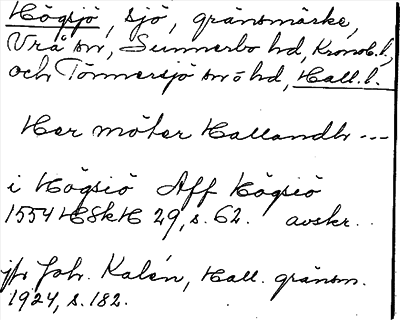 Högsjö, sjö, gränsmärke,
Vrå sn, Sunnerbo hd, Kronob.l,
och Tönnersjö sn o hd, Hall.l.
Her möter Hallandh ---
i Högsiö Aff Högsiö
1554 HSkH 29, s. 62. avskr.
jfr Joh. Kalén, Hall. gränsm.
1924, s. 182.